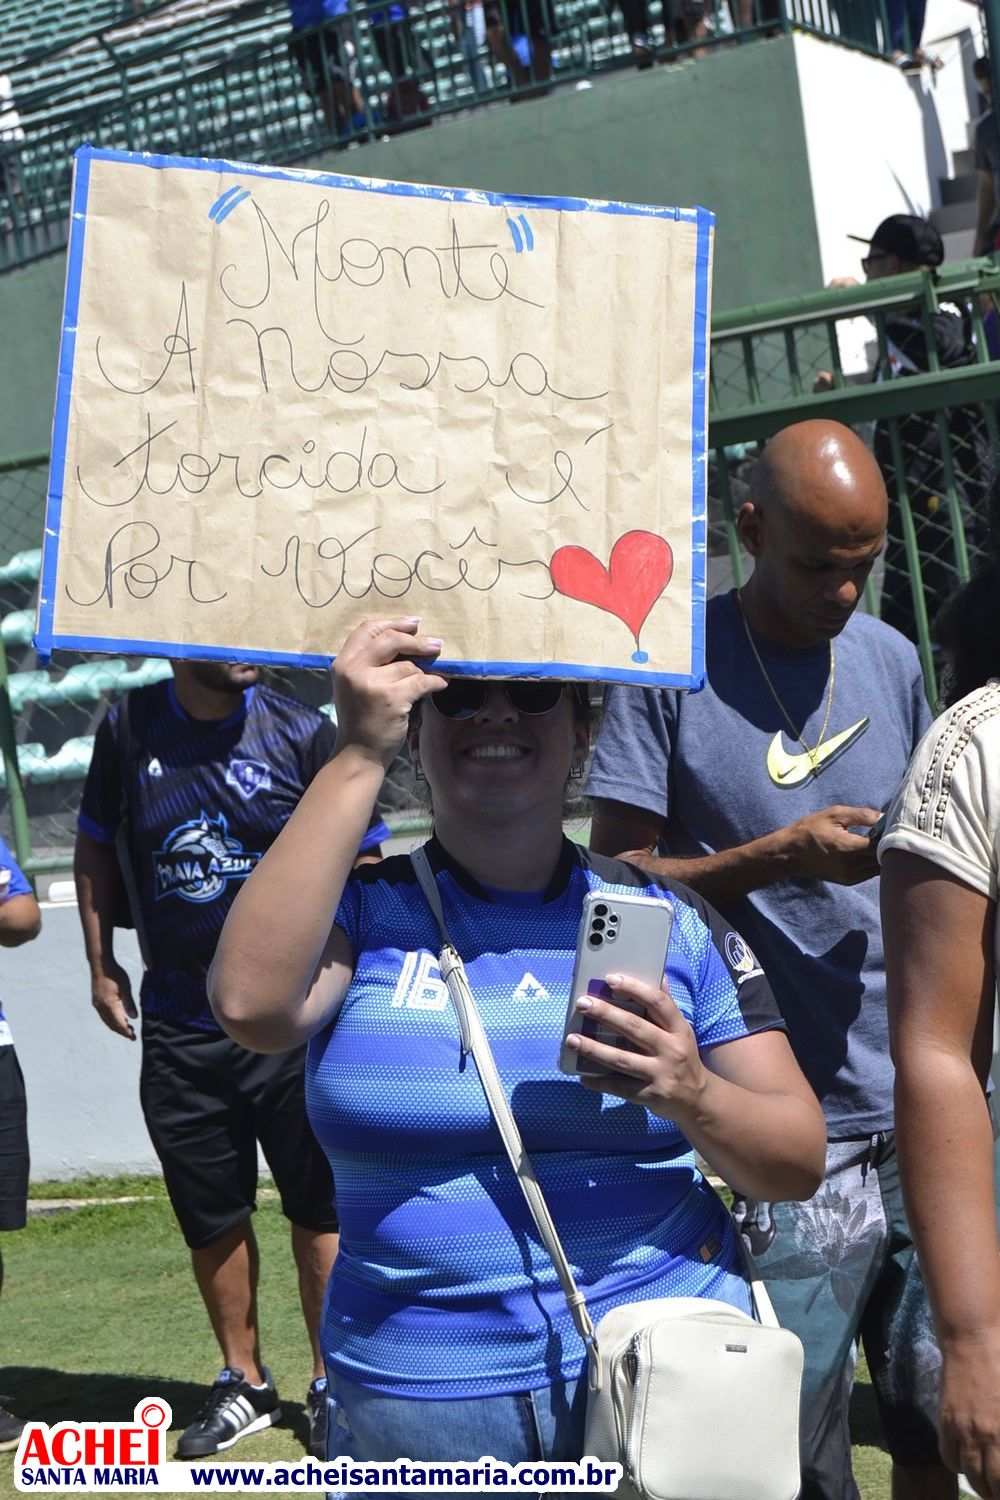 "Monte"
A Nossa
torcida é
Por Vocês
BRAVA AZUL
16
ACHEI
SANTA MARIA
www.acheisantamaria.com.br